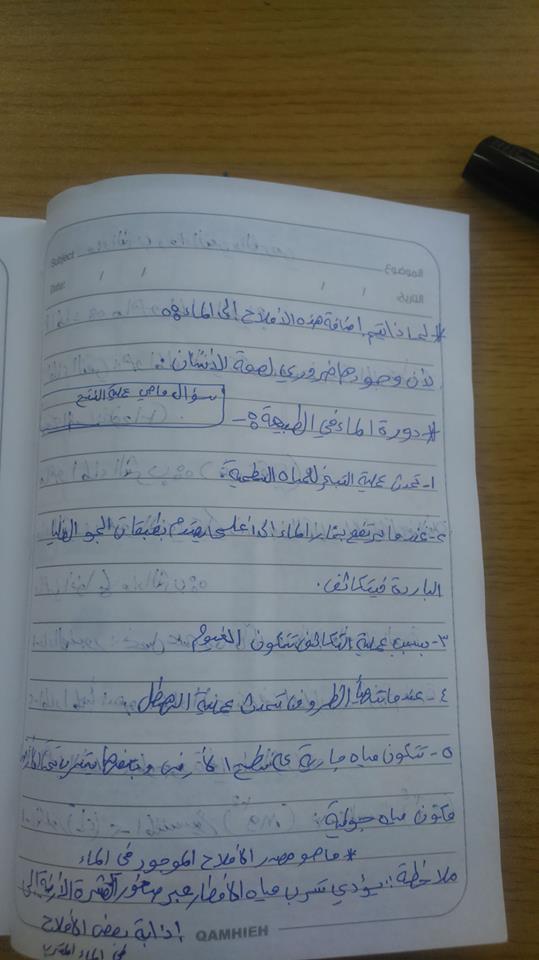 Subject الموضوع
Date: / / / / التاريخ
# لماذا يتم إضافة هذه الأملاح إلى الماء؟
لأن وجودها ضروري لصحة الأسنان.
سؤال ما هي عملية النتح
# دورة الماء في الطبيعة :-
١- تحدث عملية التبخر للمياه السطحية.
٢- عندما يرتفع بخار الماء إلى أعلى يصتدم بطبقات الجو العليا
الباردة فيتكاثف.
٣- بسبب عملية التكاثف تتكون الغيوم
٤- عندما تتهيأ الظروف تحدث عملية الهطل.
٥- تتكون مياه جارية على سطح الأرض وبعضها يتسرب تحت
مكون مياه جوفية.
* ما هو مصدر الأملاح الموجود في الماء
ملاحظة: يؤدي تسرب مياه الأمطار عبر صخور القشرة الأرضية إلى
إذابة بعض الأملاح
في الماء
QAMHIEH